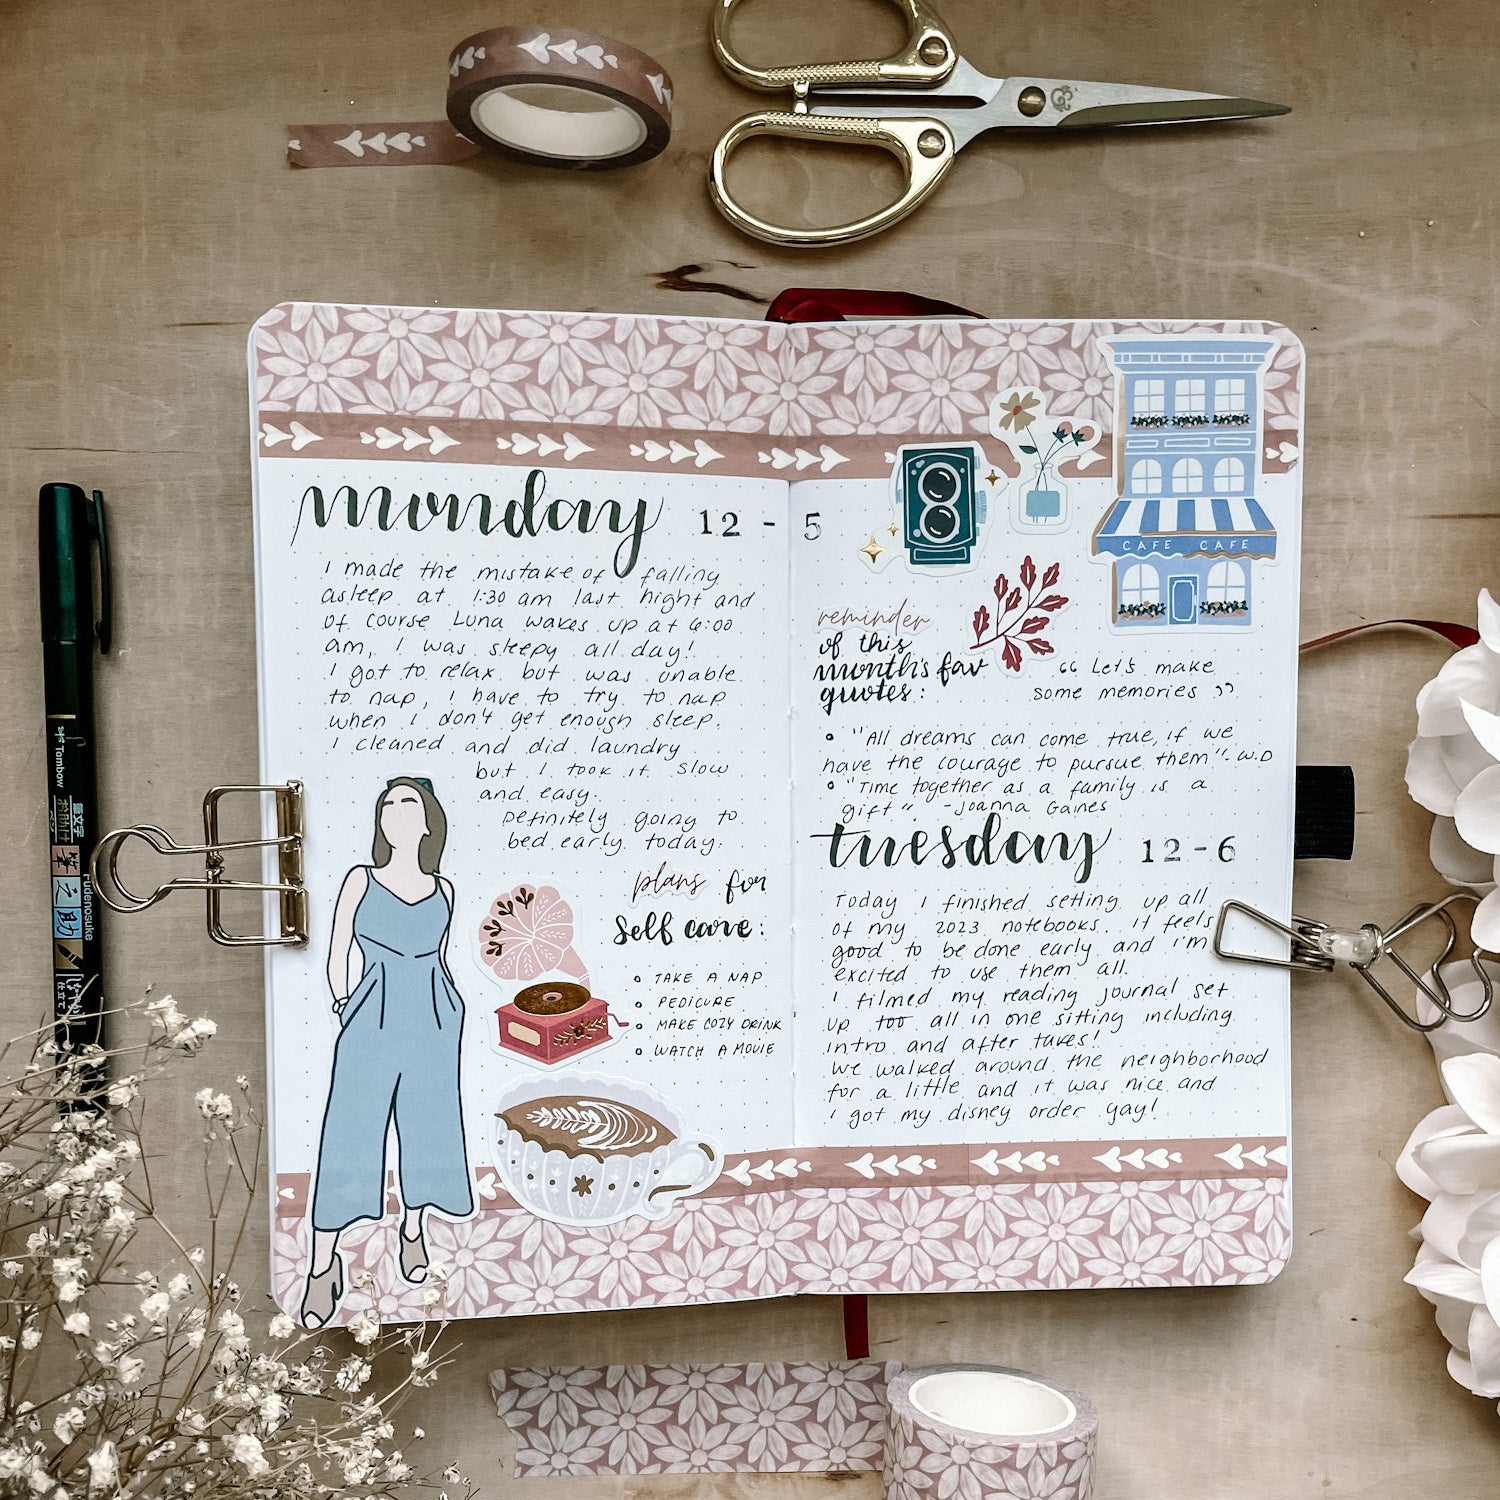 monday 12-5
I made the mistake of falling
asleep at 1:30 am last night and
of course Luna wakes up at 6:00
am, I was sleepy all day!
I got to relax but was unable
to nap, I have to try to nap
when I don't get enough sleep.
I cleaned and did laundry
but I took it slow
and easy.
Definitely going to
bed early today.
plans for
self care:
TAKE A NAP
PEDICURE
MAKE COZY DRINK
WATCH A MOVIE
CAFE CAFE
reminder
of this
month's fav
quotes:
"Let's make
some memories"
"All dreams can come true, if we
have the courage to pursue them" - W.D
"Time together as a family is a
gift" - Joanna Gaines
tuesday 12-6
Today I finished setting up all
of my 2023 notebooks. it feels
good to be done early and I'm
excited to use them all.
I filmed my reading journal set
up too all in one sitting including
intro and after takes!
We walked around the neighborhood
for a little and it was nice and
I got my disney order yay!
Tombow
Fudenosuke
筆之助